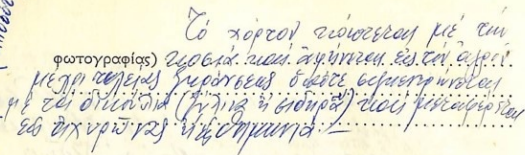 Τό χόρτον κόπτεται μέ τήν
φωτογραφίας) κοσιά καί ἀφήνεται εἰς τόν ἀγρόν
μέχρι τελείας ξηράνσεως ὁπότε συγκεντρώνεται
μέ τά δικούλια (ξύλινα ἤ σιδηρᾶ) καί μεταφέρεται
εἰς ἀχυρῶνας ἤ θημωνιά.